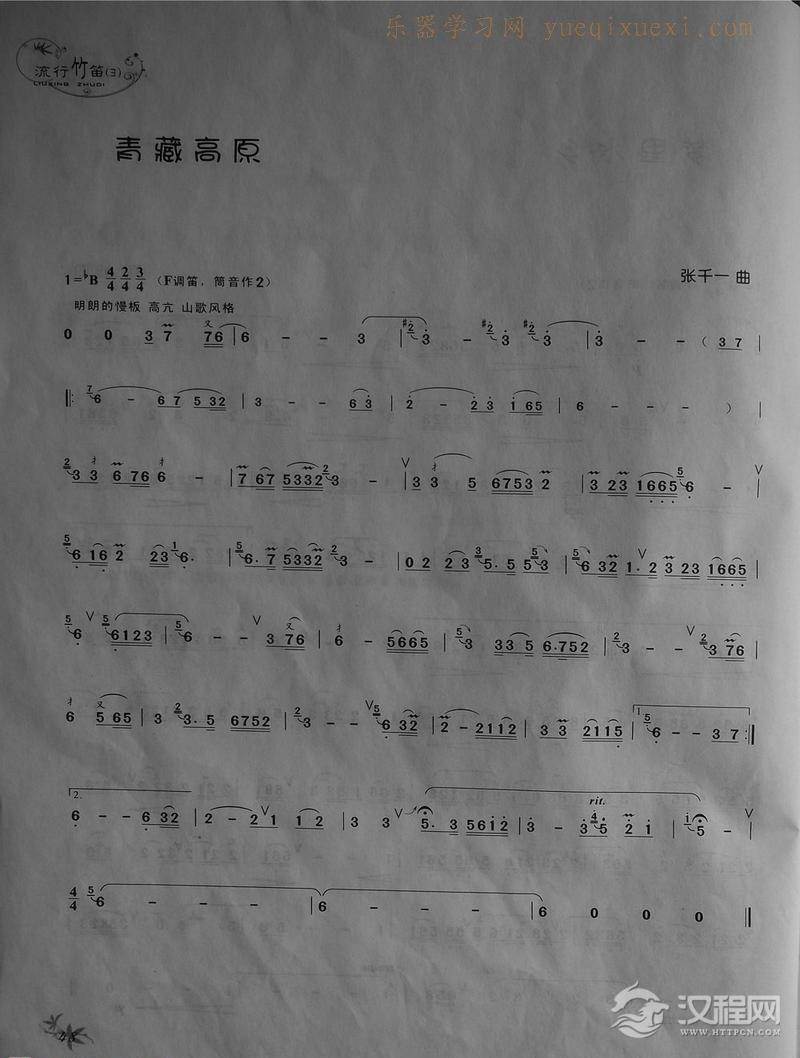 乐器学习网 yueqixuexi.com
流行竹笛(3)
LIUXING ZHUDI
青藏高原
1=♭B 4/4 2/4 3/4 (F调笛，筒音作2)
张千一 曲
明朗的慢板 高亢 山歌风格
0 0 3 7 76 | 6 - - 3 | #2 3 - #2 3 #2 3 | 3 - - ( 3 7 |
‖: 7 6 - 6 7 5 32 | 3 - - 6 3 | 2 - 2 3 1 65 | 6 - - - ) |
2 3 3 6 76 6 - | 7 67 5332 2 3 - | 3 3 5 6753 2 | 3 23 1665 5 6 - |
5 6 16 2 23 1 6. | 5 6. 7 5332 2 3 - | 0 2 2 3 3 5. 5 5 5 3 | 5 6 32 1. 2 3 23 1665 |
5 6 5 6123 5 6 - - 3 76 | 6 - 5665 | 5 3 33 5 6.752 | 2 3 - - 2 3 76 |
6 5 65 | 3 2 3. 5 6752 | 2 3 - - 5 6 32 | 2 - 2112 | 3 3 2115 | 1. 5 6 - - 3 7 :‖
2. 6 - - 6 32 | 2 - 2 1 1 2 | 3 3 5. 3 5612 | 3 - 3 4 5 2 1 | 1 5 - |
rit.
4/4 5 6 - - - | 6 - - - | 6 0 0 0 ‖
汉程网
WWW.HTTPCN.COM